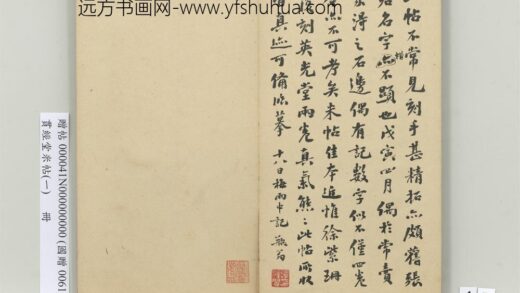 远方书画网 www.yfshuhua.com
帖不常見刻手甚精拓亦頗舊張
名字亦不顯也戊寅心月偶於常賣
得之石邊偶有記數字似不僅四卷
亦不可考矣米帖佳本近惟徐紫珊
刻英光堂兩卷真氣熊熊此帖所收
真迹可備臨摹
十八日梅雨中記
贈帖 000041N000000000 (國贈 0061
貫經堂米帖(一) 冊